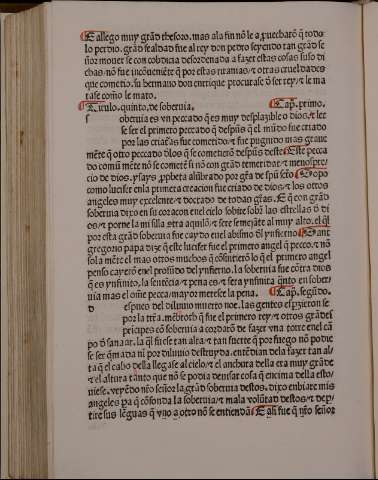 E allego muy grãd thesoro. mas ala fin nõ le a ꝓuecharõ q̃ todo
lo perdio. grãd fealdad fue al rey don pedro seyendo tan grãd se
ñor mouer se con cobdicia desordenada a fazer estas cosas suso di
chas. nõ fue incõueniẽte q̃ por estas tiranias ⁊ otras crueldades
que cometio. su hermano don enrique procurase d̃ ser rey ⁊ le ma
tase como le mato.
Titulo. quinto. de soberuia. Cap̃. primo.
s oberuia es vn peccado q̃ es muy desplazible o dios. ⁊ el
se ser el primero peccado q̃ despũs q̃l mũdo fue criado
por las criat̃as fue cometido ⁊ fue pugnido mas graue
mẽte q̃ otro peccado dlos q̃ se cometierõ despũs deste Este pecca
do comũ mẽte nõ se comete sĩ nõ con grãd temeridad ⁊ menospre
cio de dios. ysays ꝓpheta alũbrado por gr̃a de spũ sctõ
como lucifer enla primera creacion fue criado de dios ⁊ los otros
angeles muy excelente ⁊ doctado de todas gr̃as. E q̃ con grãd
soberuia dixo en su coraçon enel cielo sobire sobr̃ las estrellas d̃ di
os ⁊ porne la mi silla ⁊ sere semejãte al muy alto. el q̃l
por esta grãd soberuia fue caydo enel abismo dl ynfierno Sant
gregorio papa diz̃ q̃ este lucifer fue el primero angel q̃ pecco. ⁊ nõ
sola mẽte el mas otros muchos q̃ cõsintierõ lo q̃ el primero angel
penso cayerõ enel profũdo del ynfierno. la soberuia fue cõtra dios
q̃ es ynfinito. la sentẽcia ⁊ pena es ⁊ sera ynfinita q̃nto en sober
uia mas el om̃e pecca mayor merese la pena. Cap̃. segũdo.
d espues del diluuio muerto noe. las gentes espzieron se
por la tr̃ra. mẽbroth q̃ fue el primero rey ⁊ otros grãdes
principes cõ soberuia a cordarõ de fazer vna torre enel cã
po d̃ sanaar. la q̃l fuese tan alta ⁊ tan fuerte q̃ por fuego nõ podie
se ser q̃mada ni por diluuio destruyda. entẽdian dela fazer tan al
ta q̃ el cabo della llegase al cielo ⁊ el anchura della era muy grãde
⁊ el altura tanto que nõ se podia deuisar cosa q̃ encima della esto
uiese. veyẽdo nr̃o señor la grãd soberuia destos. dixo enbiare mis
angeles ꝑa q̃ cõfonda la soberuia ⁊ mala volũtad destos ⁊ depar
tire sus lẽguas q̃ vno a otro nõ se entiendã E asi fue q̃ nr̃o señor